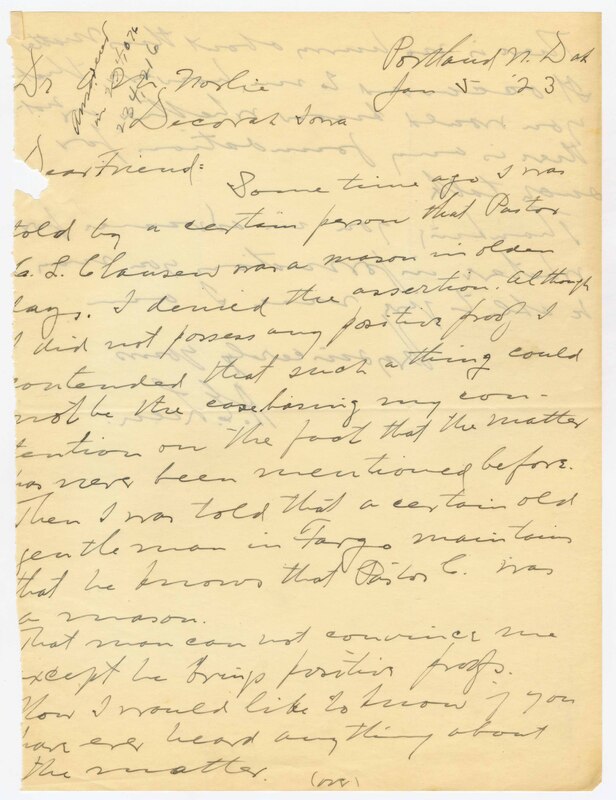 Portland N. Dak
Jan 5 '23
Answered
Dr O. M. Norlie
Decorah Iowa
Dear Friend:
Some time ago I was
told by a certain person that Pastor
C. L. Clausen was a mason in olden
days. I denied the assertion. Although
I did not possess any positive proof I
contended that such a thing could
not be the case basing my con-
tention on the fact that the matter
has never been mentioned before.
Then I was told that a certain old
gentleman in Fargo maintains
that he knows that Pastor C. was
a mason.
That man can not convince me
except he brings positive proofs.
Now I would like to know if you
have ever heard anything about
the matter.
(over)